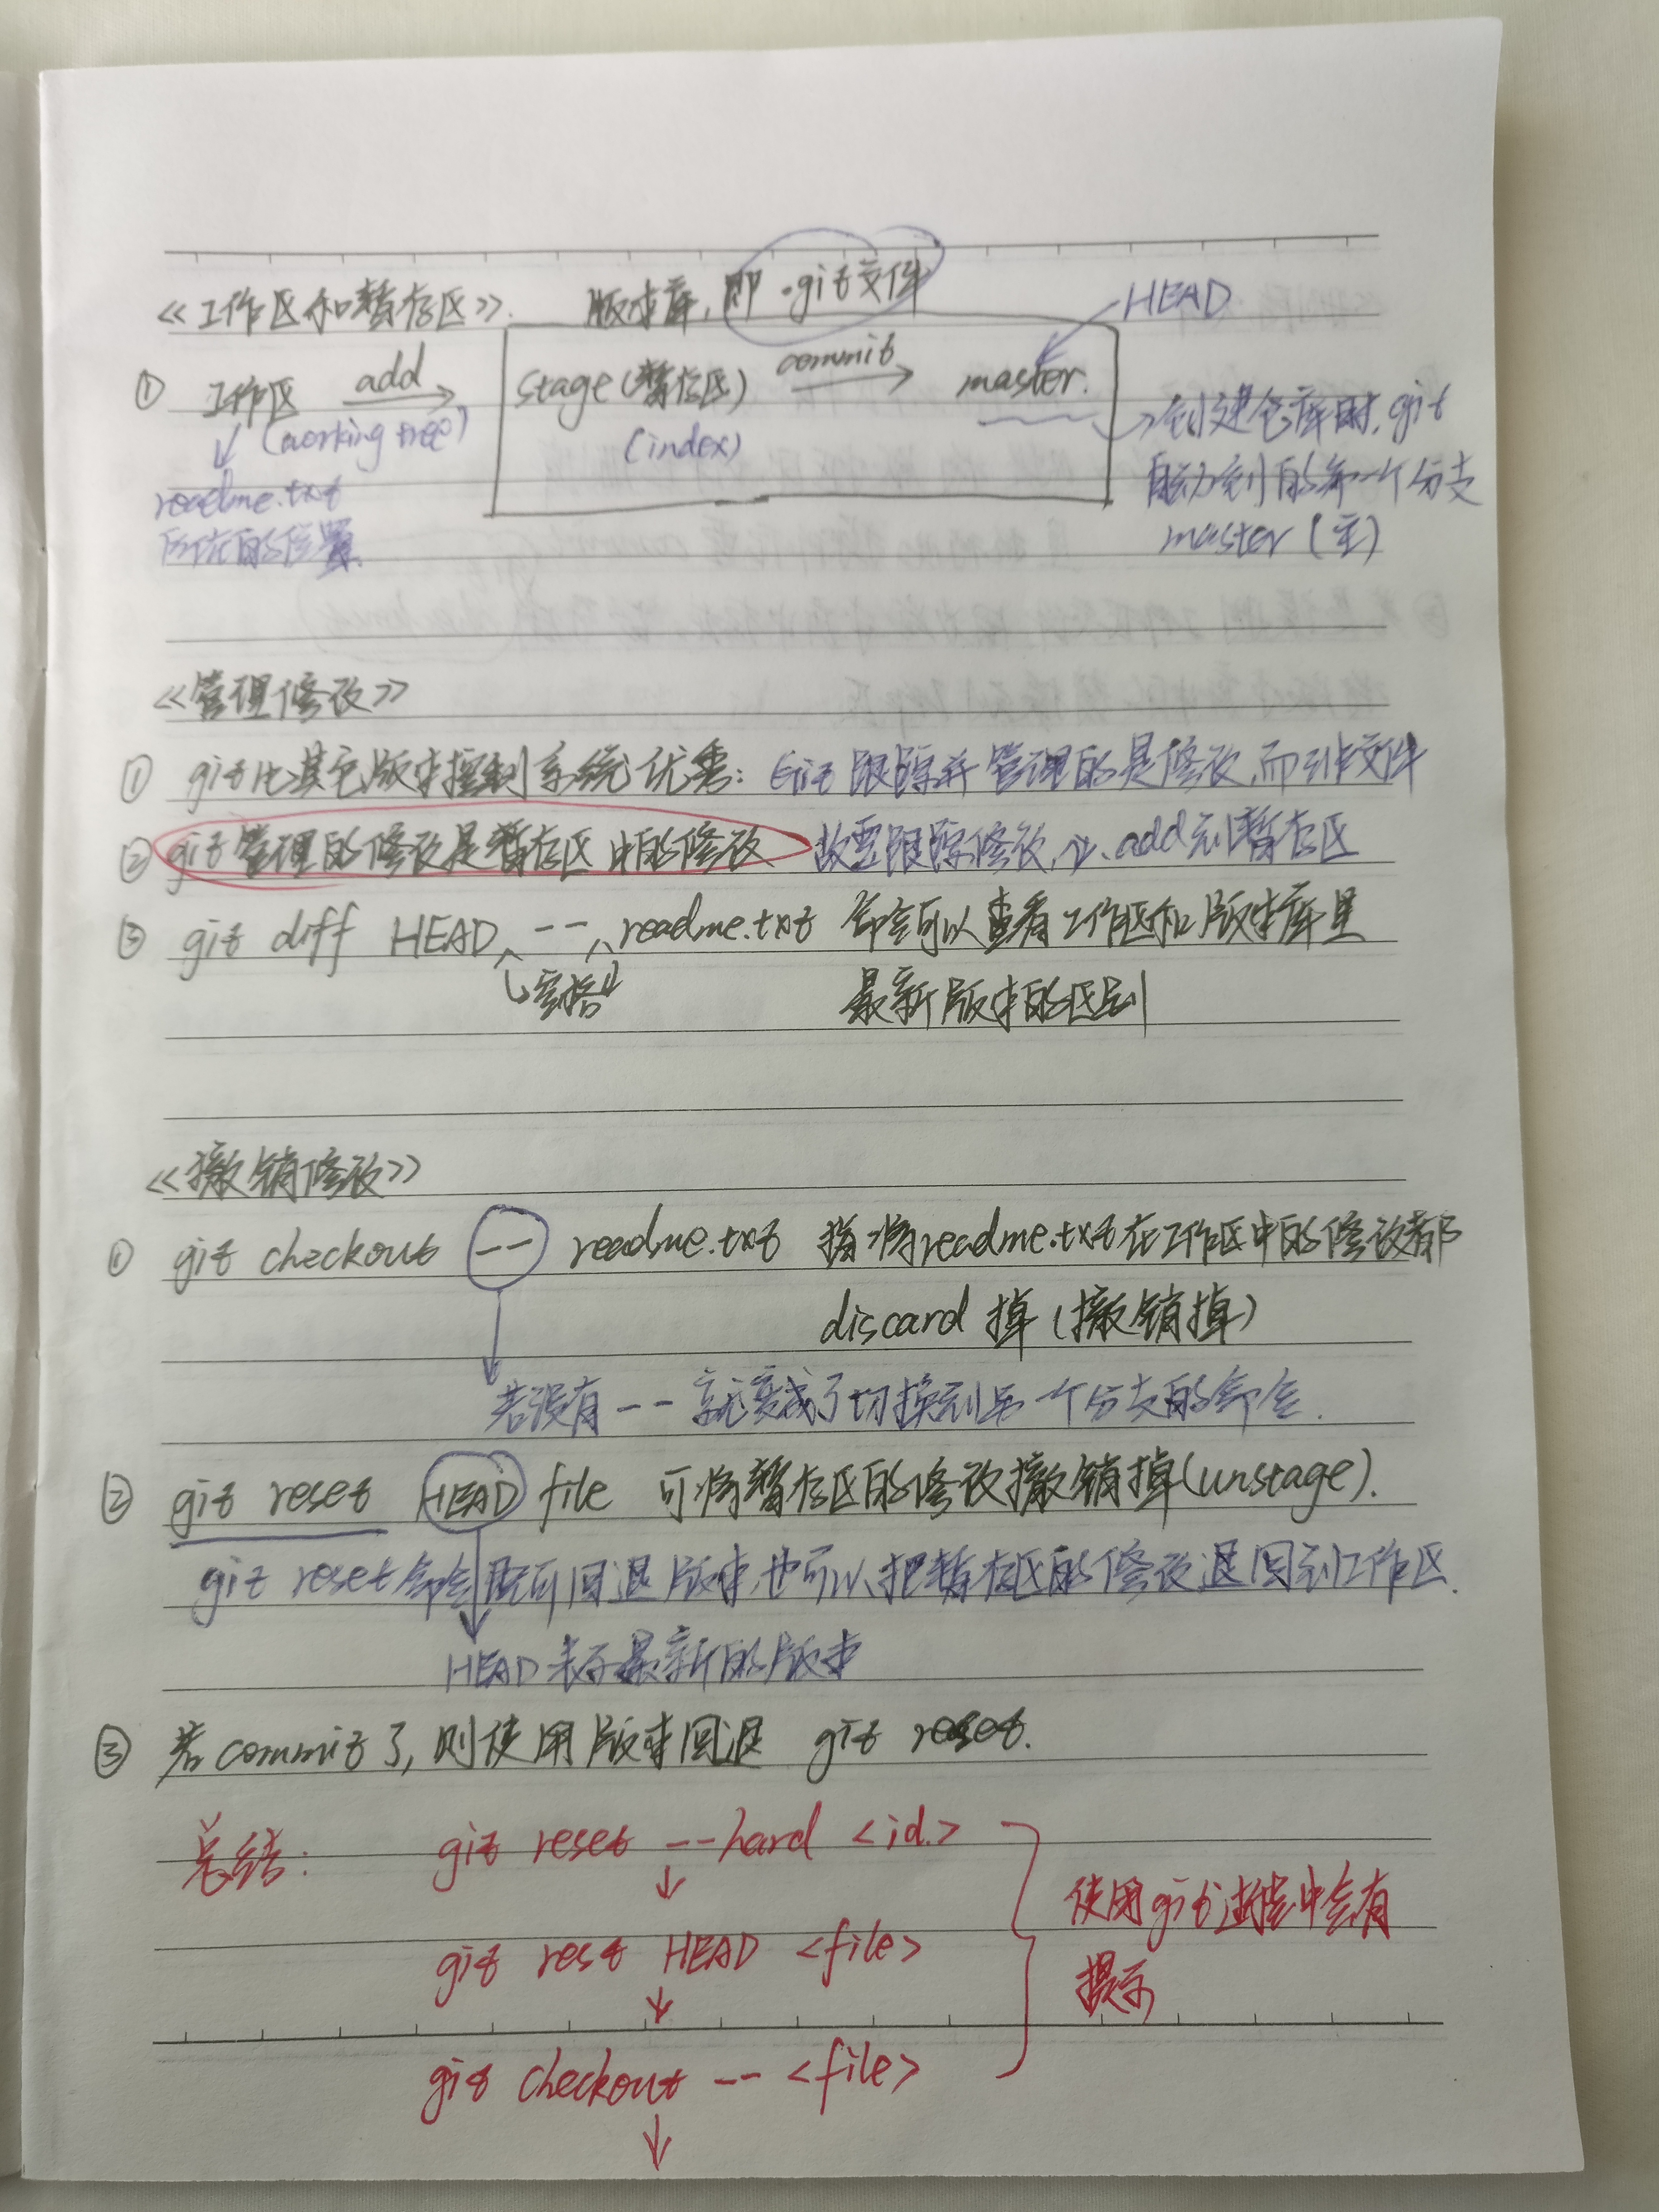 《工作区和暂存区》. 版本库,即.git文件
HEAD
① 工作区 add stage(暂存区) commit master.
(working tree) (index)
readme.txt
所在的位置.
创建仓库时,git
自动创的第一个分支
master(主)
《管理修改》
① git比其它版本控制系统优秀: Git跟踪并管理的是修改,而非文件
② git管理的修改是暂存区中的修改 故要跟踪修改,必add到暂存区
③ git diff HEAD -- readme.txt 命令可以查看工作区和版本库里
空格
最新版本的区别
《撤销修改》
① git checkout -- readme.txt 指将readme.txt在工作区中的修改都
discard 掉(撤销掉)
若没有 -- 就变成了切换到另一个分支的命令.
② git reset HEAD file 可将暂存区的修改撤销掉(unstage).
git reset命令既可回退版本,也可以把暂存区的修改退回到工作区.
HEAD表示最新的版本
③ 若commit了,则使用版本回退 git reset.
总结: git reset --hard <id>
git reset HEAD <file>
使用git过程中会有
提示
git checkout -- <file>